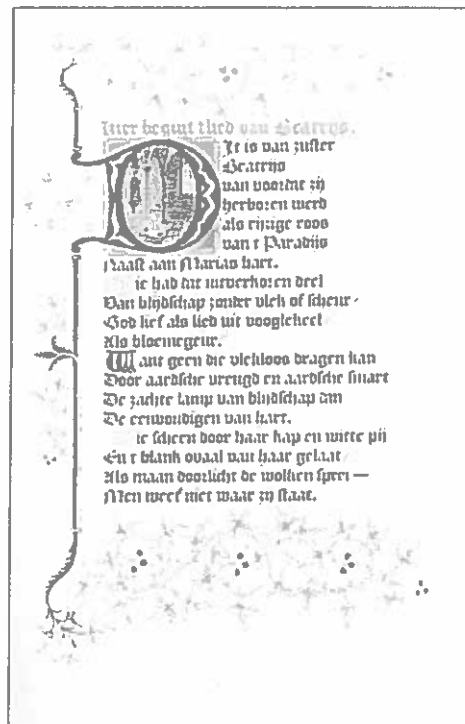 Hier begint tlied van Beatrijs.
Dit is van zuster
Beatrijs
van voordat zij
herboren werd
als rijzige roos
van t Paradijs
Naast aan Marias hart.
Ze had dit uitverkoren deel
Van blijdschap zonder vlek of scheur -
God lief als lied uit voglekeel
Als bloemegeur.
Want geen die vlekloos dragen kan
Door aardsche vreugd en aardsche smart
De zachte lamp van blijdschap dan
De eenvoudigen van hart.
Ze scheen door haar kap en witte pij
En t blank ovaal van haar gelaat
Als maan doorlicht de wolken sprei —
Men weet niet waar zij staat.